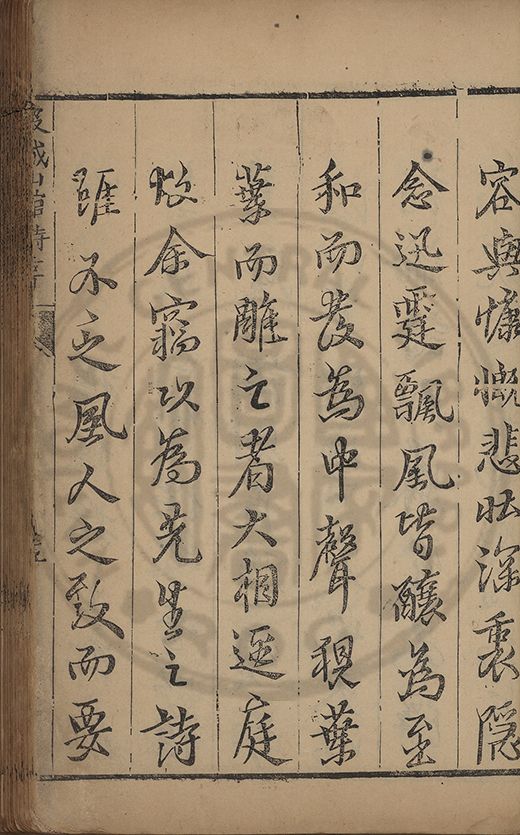 容與慷慨悲壯深衷隱
念迅霆飄風皆釀為至
和而發為中聲視葉
葉而雕之者大相逕庭
故余竊以為先生之詩
雖不乏風人之致而要
城山館詩序